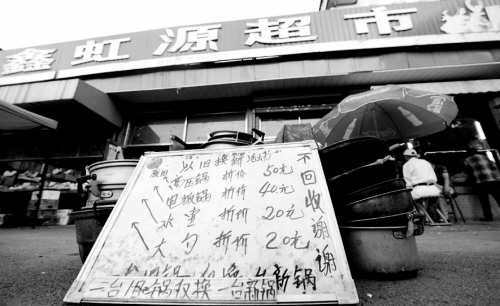 鑫虹源超市
"以旧换新活动"
高压锅 折价 50元
电饭锅 折价 40元
水壶 折价 20元
大勺 折价 20元
二台旧锅仅换一台新锅
不回收谢谢